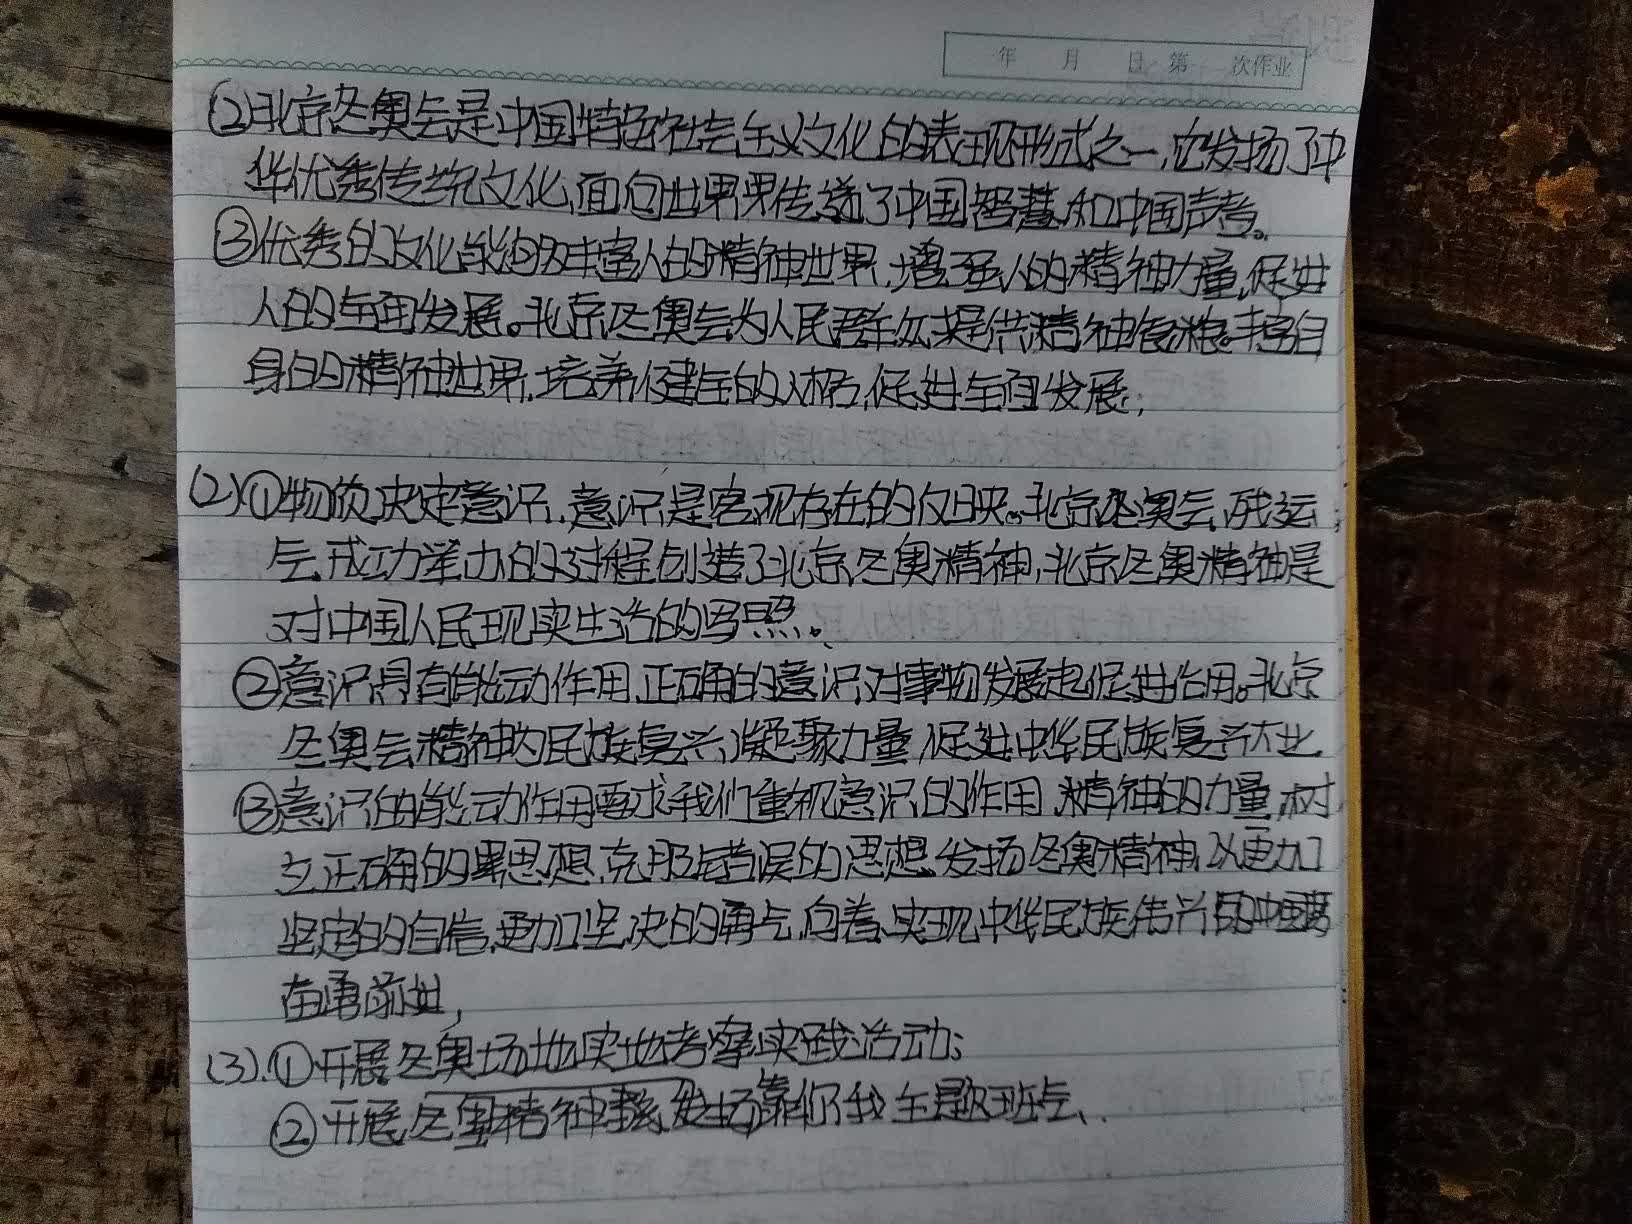 年 月 日 第 次作业
②北京冬奥会是中国特色社会主义文化的表现形式之一,它发扬了中
华优秀传统文化,面向世界传递了中国智慧和中国声音。
③优秀的文化能够丰富人的精神世界,增强人的精神力量,促进
人的全面发展。北京冬奥会为人民群众提供精神食粮,丰富自
身的精神世界,培养健全的人格,促进全面发展;
(2)①物质决定意识,意识是客观存在的反映。北京冬奥会,残运
会成功举办的过程创造了北京冬奥精神,北京冬奥精神是
对中国人民现实生活的写照。
②意识具有能动作用,正确的意识对事物发展起促进作用。北京
冬奥会精神为民族复兴凝聚力量,促进中华民族复兴大业
③意识的能动作用要求我们重视意识的作用,精神的力量,树
立正确的思想,克服错误的思想,发扬冬奥精神,以更加
坚定的自信,更加坚决的勇气,向着实现中华民族伟兴的中国梦
奋勇前进,
(3).①开展冬奥场地实地考察实践活动;
②开展冬奥精神 主题班会、